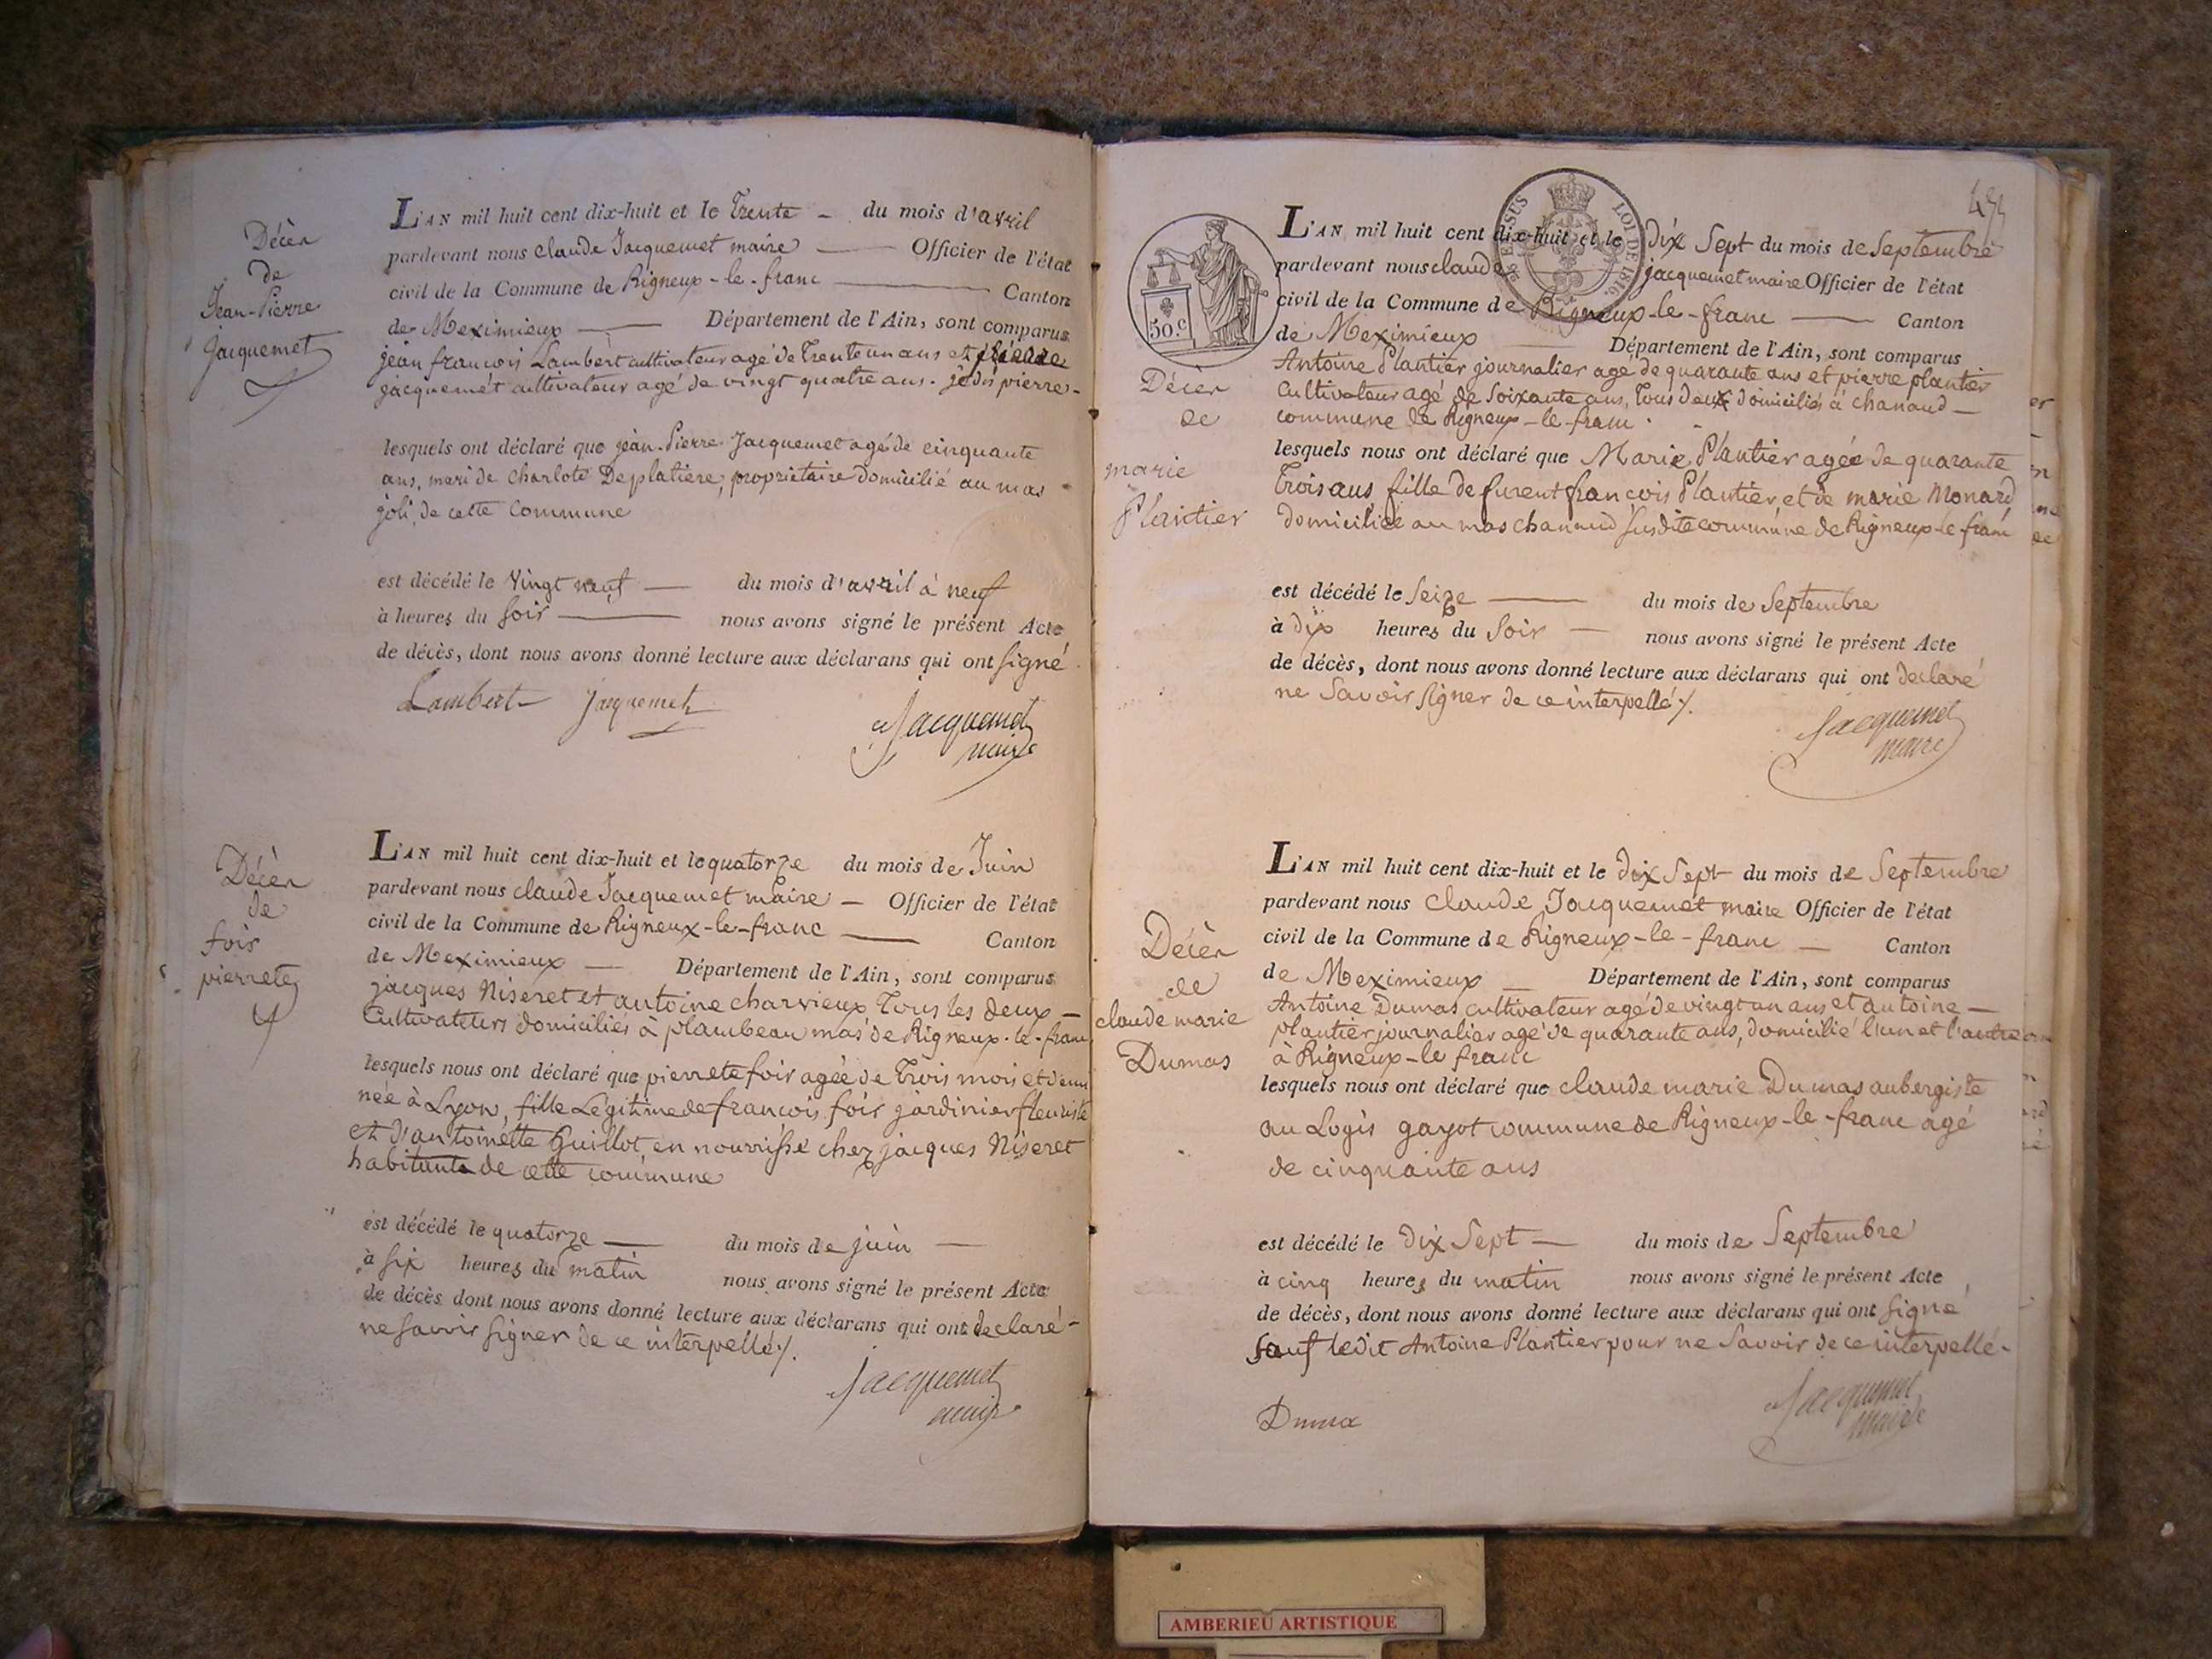 Décès
de
Jean-Pierre
Jacquemet
L'AN mil huit cent dix-huit et le Trente du mois d'avril
pardevant nous claude Jacquemet maire Officier de l'état
civil de la Commune de Rigneux-le-franc Canton
de Meximieux Département de l'Ain, sont comparus
jean francois Lambert cultivateur agé de Trente un ans et
jacquemet cultivateur agé de vingt quatre ans. je dis pierre-
lesquels ont déclaré que jean-Pierre Jacquemet agé de cinquante
ans, mari de Charlote Deplatiere, propriétaire domicilié au mas
joli, de cette Commune
est décédé le vingt neuf du mois d'avril à neuf
à heures du soir nous avons signé le présent Acte
de décès, dont nous avons donné lecture aux déclarans qui ont signé
Lambert Jacquemet
Jacquemet
maire
Décès
de
foir
pierrete
L'AN mil huit cent dix-huit et le quatorze du mois de Juin
pardevant nous claude Jacquemet maire Officier de l'état
civil de la Commune de Rigneux-le-franc Canton
de Meximieux Département de l'Ain, sont comparus
jacques Niseret et antoine charvieux Tous les deux
Cultivateurs domiciliés à plambeau mas de Rigneux-le-franc
lesquels nous ont déclaré que pierrete foir agée de Trois mois et demi
née à Lyon, fille Légitime de francois foir jardinier fleuriste
et d'antoinette Guillot, en nourrisse chez jacques Niseret
habitant de cette commune
est décédé le quatorze du mois de juin
à six heures du matin nous avons signé le présent Acte
de décès dont nous avons donné lecture aux déclarans qui ont declaré
ne savoir signer de ce interpellé /.
Jacquemet
maire
ESUS LOI DE 1816.
50.c
Décès
de
marie
Plantier
L'AN mil huit cent dix-huit et le dix Sept du mois de Septembre
pardevant nous claude jacquemet maire Officier de l'état
civil de la Commune de Rigneux-le-franc Canton
de Meximieux Département de l'Ain, sont comparus
Antoine Plantier journalier age de quarante ans et pierre plantier
Cultivateur agé de Soixante ans, Tous deux domiciliés à chanaud
commune de Rigneux-le-franc.
lesquels nous ont déclaré que Marie Plantier agée de quarante
Trois ans fille de furent francois Plantier et de marie Monard
domiciliée au mas chanaud susdite commune de Rigneux-le-franc
est décédé le seize du mois de Septembre
à dix heures du Soir nous avons signé le présent Acte
de décès, dont nous avons donné lecture aux déclarans qui ont declaré
ne Savoir signer de ce interpellé /.
Jacquemet
maire
Décès
de
claude marie
Dumas
L'AN mil huit cent dix-huit et le Dix Sept du mois de Septembre
pardevant nous Claude Jacquemet maire Officier de l'état
civil de la Commune de Rigneux-le-franc Canton
de Meximieux Département de l'Ain, sont comparus
Antoine Dumas cultivateur agé de vingt un ans et antoine
plantier journalier agé de quarante ans, domicilié l'un et l'autre
à Rigneux-le franc
lesquels nous ont déclaré que claude marie Dumas aubergiste
au Logis gayot commune de Rigneux-le-franc agé
de cinquante ans
est décédé le Dix Sept du mois de Septembre
à cinq heures du matin nous avons signé le présent Acte
de décès, dont nous avons donné lecture aux déclarans qui ont signé
sauf ledit Antoine Plantier pour ne Savoir de ce interpellé-
Jacquemet
maire
AMBERIEU ARTISTIQUE